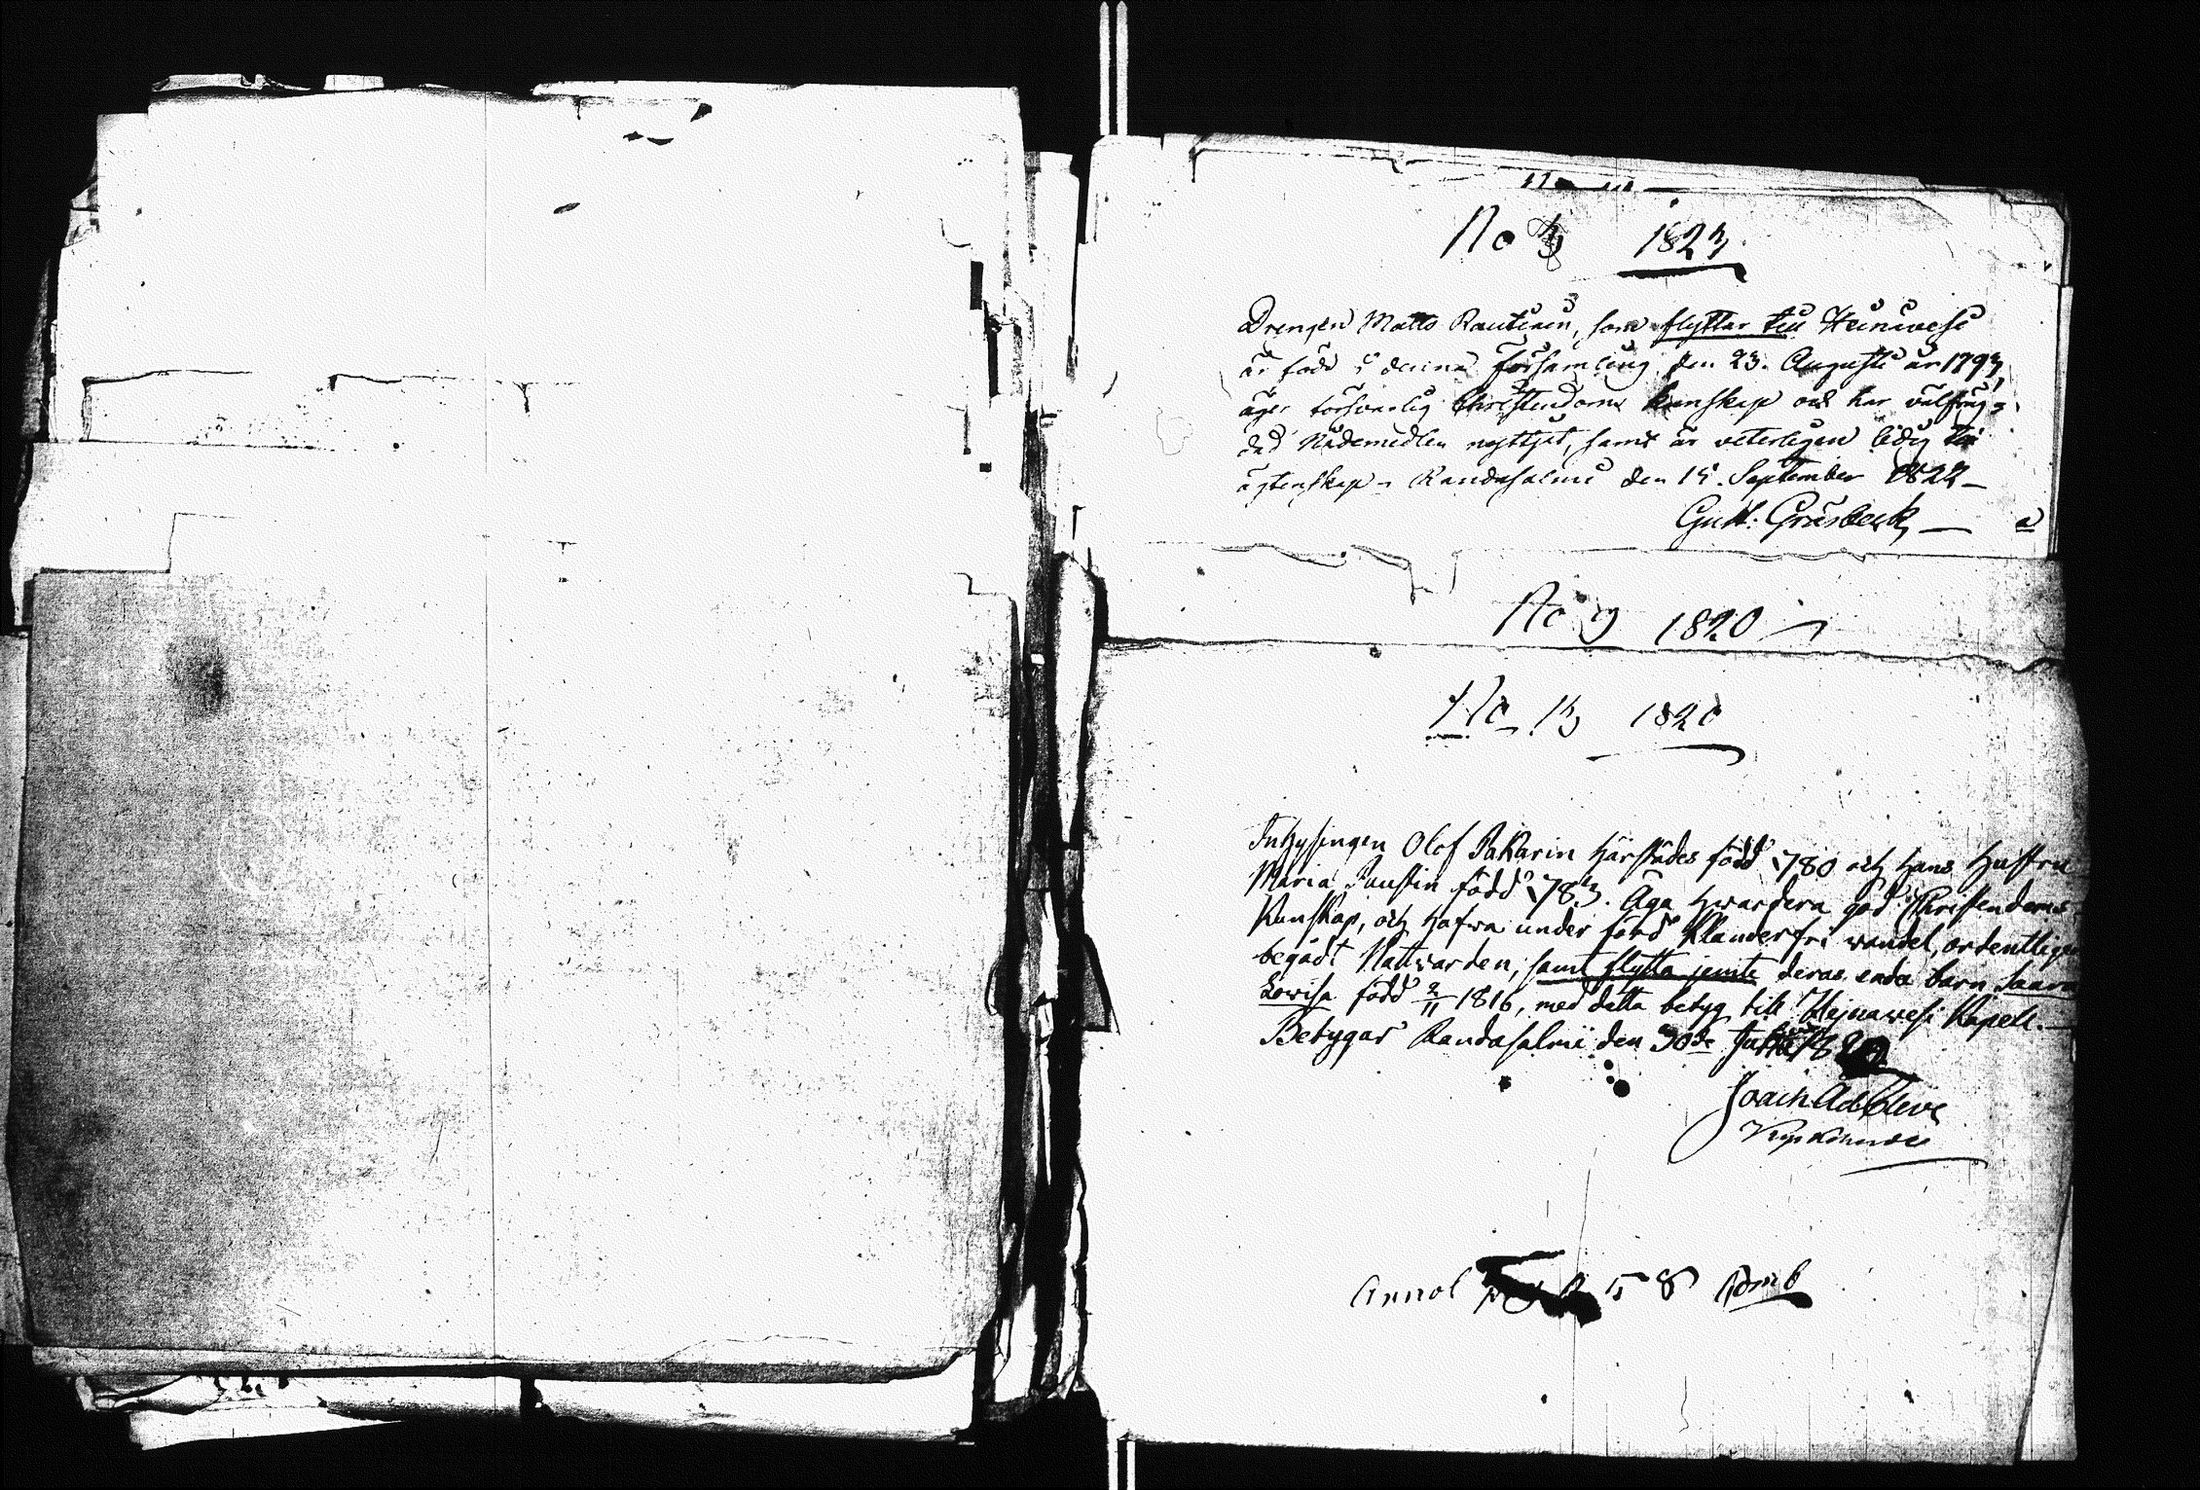 No 3 1823
Drengen Matts Rautiain, som flyttar till Heinävesi
är född i denna församling den 23. Augusti år 1793,
äger försvarlig Christendoms kunskap och har välfräg-
dad Nådemedlen nyttjat, samt är veterligen ledig till
ägtenskap. Randasalmi den 15. September 1822 –
Gust: Gråsbeck –
No 9 1820
No 13 1820
Inhysingen Olof Pakarin härstädes född 1780 och hans Hustru
Maria Paustin född 1783. Äga hwardera god Christendoms
Kunskap, och hafwa under förd Klanderfri wandel, ordentligen
begådt Nattwarden, samt flytta jemte deras enda barn Saara
Lowisa född 2/11 1816, med detta betyg till Hejnäwesi Kapell. –
Betygar Randasalmi den 30de
Joach Ad Cleve
Annot 58